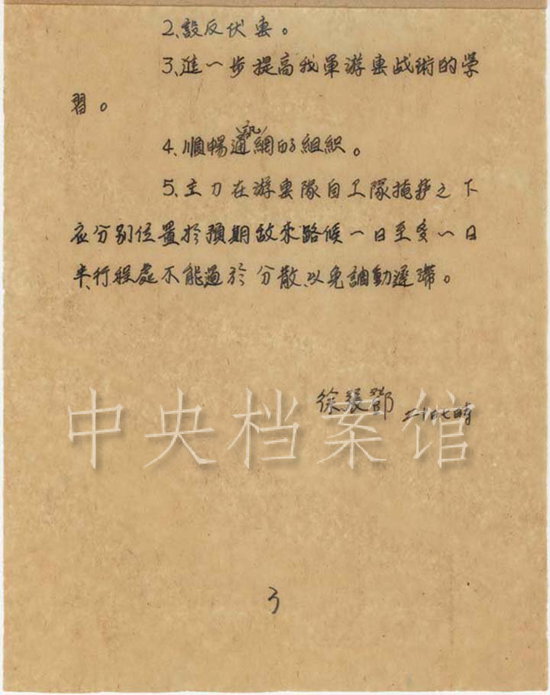 2、設反伏击。
3、進一步提高我軍游击战術的學
習。
4、順暢通訊網的組织。
5、主力在游击隊自卫隊掩护之下
应分别位置於預期敌来路候一日至多一日
半行程處不能過於分散以免調動遲滞。
徐張鄧
中央档案馆
3